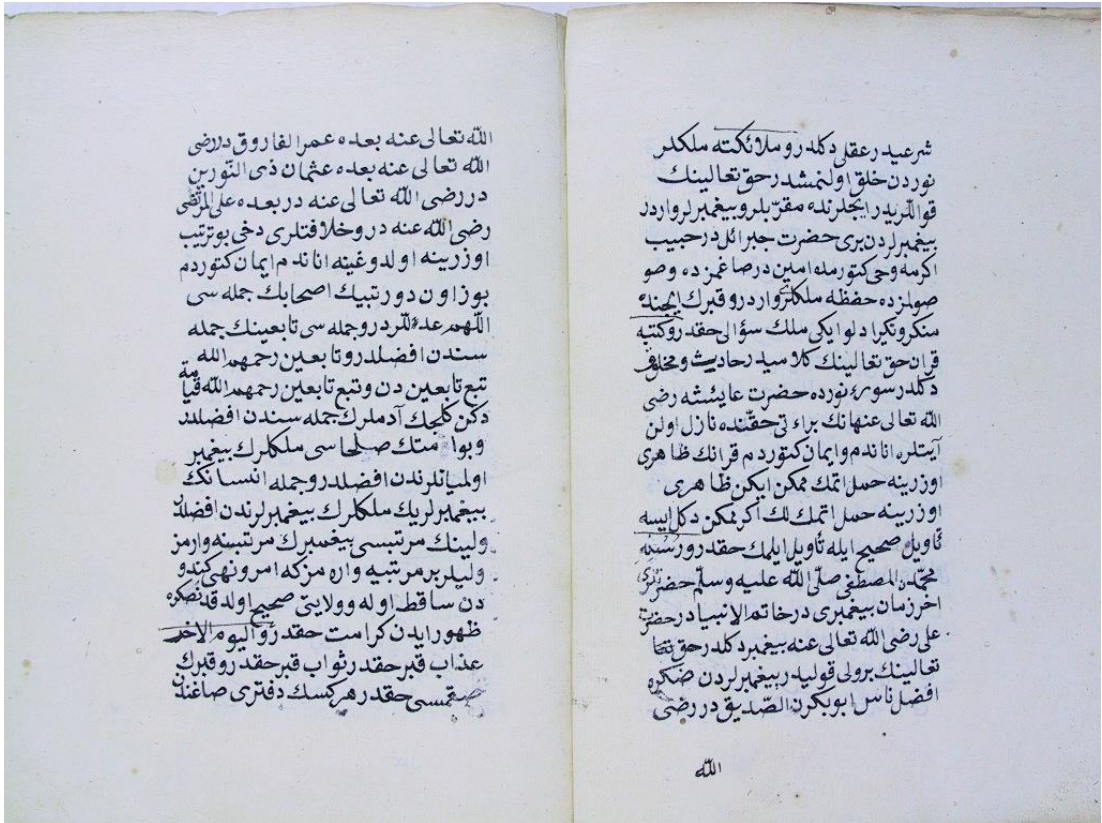 شرعیدر عقلی دکلدر و ملائکته ملکلر
نوردن خلق اولنمشدر حق تعالینك
قوللریدر ایچلرنده مقرّبلر و پیغمبرلر واردر
پیغمبرلردن بری حضرت جبرائلدر حبیب
اکرمه وحی کتورمده امین در صاغمزده وصو
صولمزده حفظه ملکلری واردر و قبرك ایچنده
منکر و نکیر ادلو ایکی ملك سؤالی حقدر و کتبه
قران حق تعالینك کلامیدر حادیث و مخلوق
دکلدر سورۀ نورده حضرت عایئشه رضی
الله تعالی عنهانك براءتی حقّنده نازل اولن
آیتلره اناندم و ایمان کتوردم قرانك ظاهری
اوزرینه حمل اتمك ممکن ایکن ظاهری
اوزرینه حمل اتمك لك اکر ممکن دکل ایسه
تأویل صحیح ایله تأویل ایلمك حقدر و رُسُلِه
محمّدن المصطفی صلّی الله علیه وسلّم حضرتلری
اخر زمان پیغمبری در خاتم الانبیادر حضرت
علی رضی الله تعالی عنه پیغمبر دکلدر حق تعا
تعالینك بر ولی قولیدر پیغمبرلردن صکره
افضل ناس ابوبکرن الصّدیق در رضی
الله
الله تعالی عنه بعده عمر الفاروق در رضی
الله تعالی عنه بعده عثمان ذی النّورین
در رضی الله تعالی عنه در بعده علی المرتضی
رضی الله عنه در و خلافتلری دخی بو ترتیب
اوزرینه اولدوغینه اناندم ایمان کتوردم
یوز اون دورت بیك اصحابك جمله سی
اللهم عدوللّردر و جمله سی تابعینك جمله
سندن افضلدر و تابعین رحمهم الله
تبع تابعین دن و تبع تابعین رحمهم الله قیامة
دکن کلجك آدملرك جمله سندن افضلدر
و بو امتك صلحاسی ملکلرك پیغمبر
اولمیانلرندن افضلدر و جمله انسانك
پیغمبرلریك ملکلرك پیغمبرلرندن افضلدر
ولینك مرتبسی پیغمبرك مرتبسنه وارمز
ولیلر بر مرتبیه واره مز که امر و نهی کندو
دن ساقط اوله و ولایتی صحیح اولدقدنصکره
ظهور ایدن کرامت حقدر و الیوم الاخر
عذاب قبر حقدر ثواب قبر حقدر و قبرك
صقمسی حقدر هر کسك دفتری صاغندن